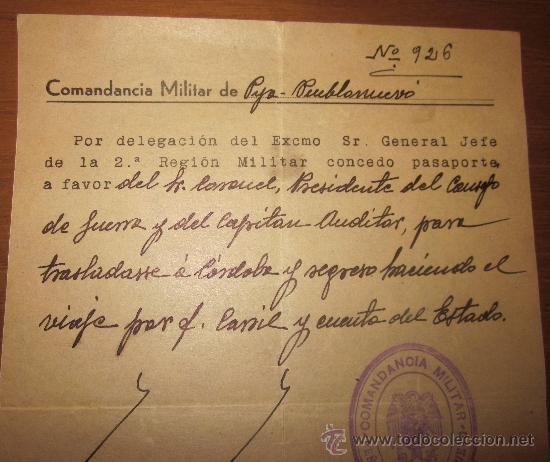 Nº 926
Comandancia Militar de Pya-Pueblonuevo
Por delegación del Excmo Sr. General Jefe
de la 2.ª Región Militar concedo pasaporte,
a favor del Sr. Coronel, Presidente del Consejo
de Guerra y del Capitan Auditor, para
trasladarse á Córdoba y regreso haciendo el
viaje por f. Carril y cuenta del Estado.
COMANDANCIA MILITAR
todocoleccion
www.todocoleccion.net